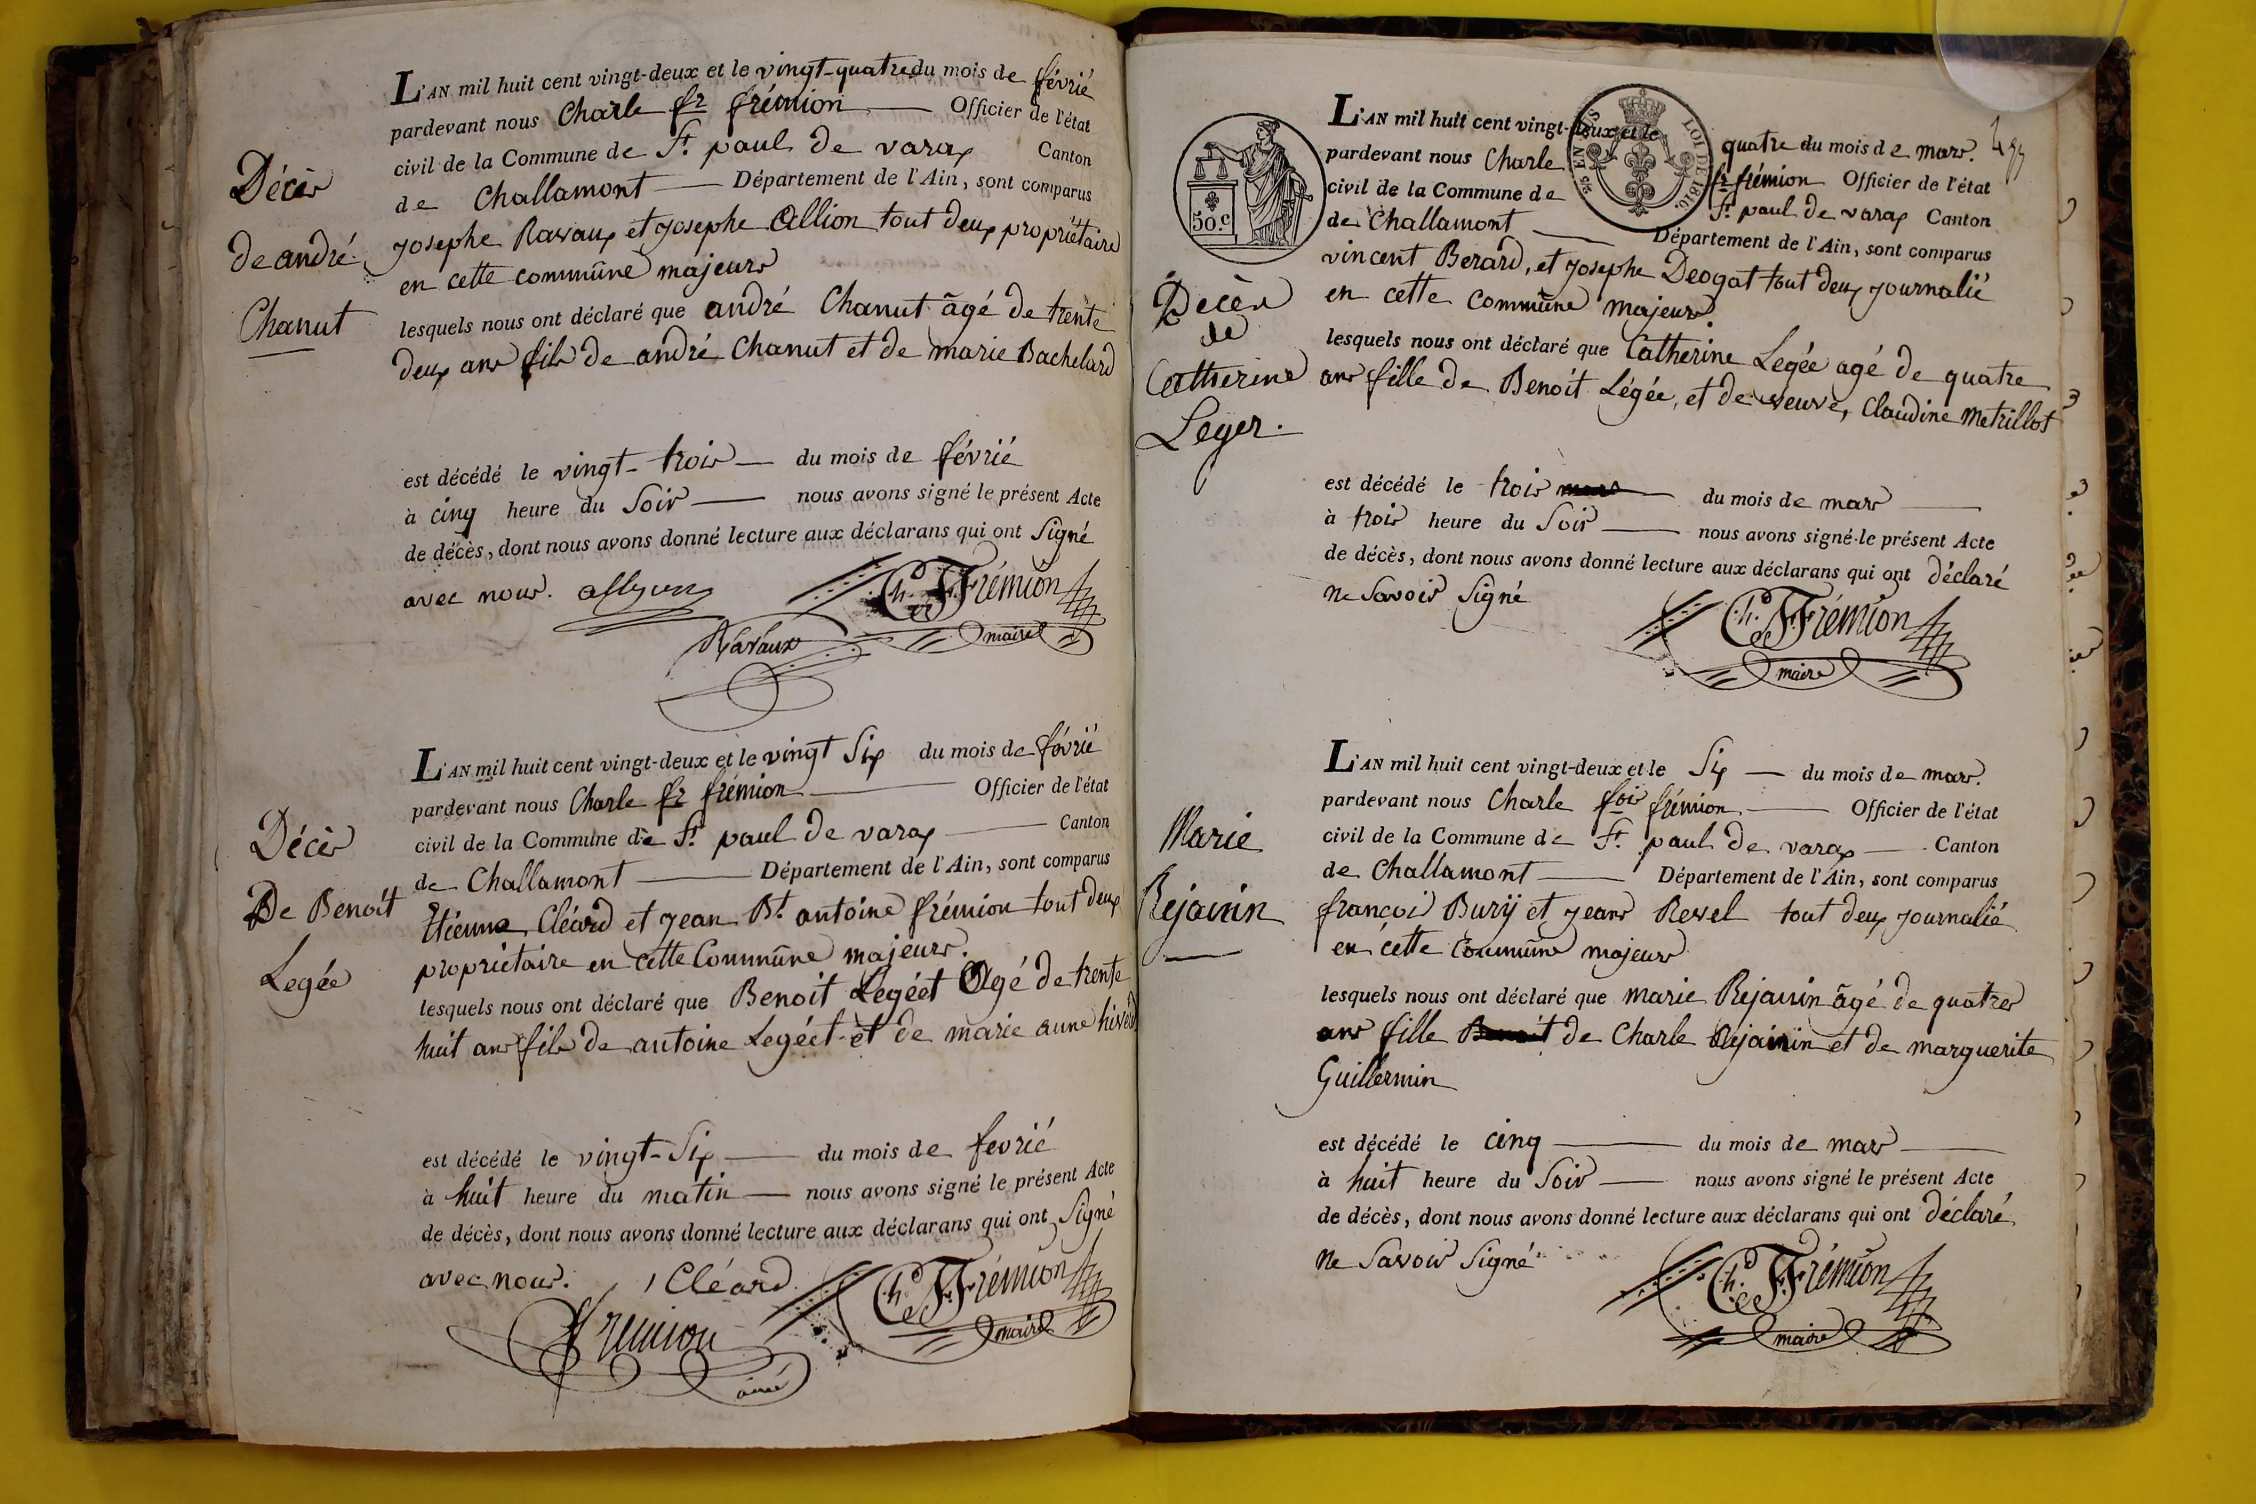 Décès
de andré
Chanut
L'AN mil huit cent vingt-deux et le vingt-quatre du mois de févrié
pardevant nous Charle fr frémion Officier de l'état
civil de la Commune de St. paul de varax Canton
de Challamont Département de l'Ain, sont comparus
Josephe Ravaux et Josephe Allion tout deux propriétaire
en cette commune majeurs
lesquels nous ont déclaré que andré Chanut âgé de trente
deux ans fils de andré Chanut et de marie Bachelard
est décédé le vingt-trois du mois de févrié
à cinq heure du Soir nous avons signé le présent Acte
de décès, dont nous avons donné lecture aux déclarans qui ont Signé
avec nous. Ch. F. Frémion
Ravaux maire
Décès
De Benoit
Legée
L'AN mil huit cent vingt-deux et le vingt Six du mois de févrié
pardevant nous Charle fr frémion Officier de l'état
civil de la Commune de St. paul de varax Canton
de Challamont Département de l'Ain, sont comparus
Etienne Cléard et Jean Bt. antoine frémion tout deux
propriétaire en cette Commune majeurs.
lesquels nous ont déclaré que Benoit Legéet Agé de trente
huit ans fils de antoine Legéet et de marie anne
est décédé le vingt-Six du mois de fevrié
à huit heure du matin nous avons signé le présent Acte
de décès, dont nous avons donné lecture aux déclarans qui ont Signé
avec nous. Cléard Ch. F. Frémion
frémion maire
ainé
50.c
EN SUS LOI DE 1816.
Decès
de
Catherine
Leger.
L'AN mil huit cent vingt-deux et le quatre du mois de mars.
pardevant nous Charle fr frémion Officier de l'état
civil de la Commune de St. paul de varax Canton
de Challamont Département de l'Ain, sont comparus
vincent Berard, et Josephe Deogat tout deux journalié
en cette commune majeurs.
lesquels nous ont déclaré que Catherine Legée agé de quatre
ans fille de Benoit Légée, et de veuve, Claudine Metrillot
est décédé le trois mars du mois de mars
à trois heure du Soir nous avons signé le présent Acte
de décès, dont nous avons donné lecture aux déclarans qui ont déclaré
ne Savoir Signé
Ch. F. Frémion
maire
Marie
Rejanin
L'AN mil huit cent vingt-deux et le Six du mois de mars.
pardevant nous Charle fois frémion Officier de l'état
civil de la Commune de St. paul de varax Canton
de Challamont Département de l'Ain, sont comparus
françois Burij et Jean Revel tout deux journalié
en cette commune majeurs
lesquels nous ont déclaré que marie Rejanin âgé de quatre
ans fille Benoit de Charle Rejanin et de marguerite
Guillermin
est décédé le cinq du mois de mars
à huit heure du Soir nous avons signé le présent Acte
de décès, dont nous avons donné lecture aux déclarans qui ont déclaré
ne Savoir Signé
Ch. F. Frémion
maire